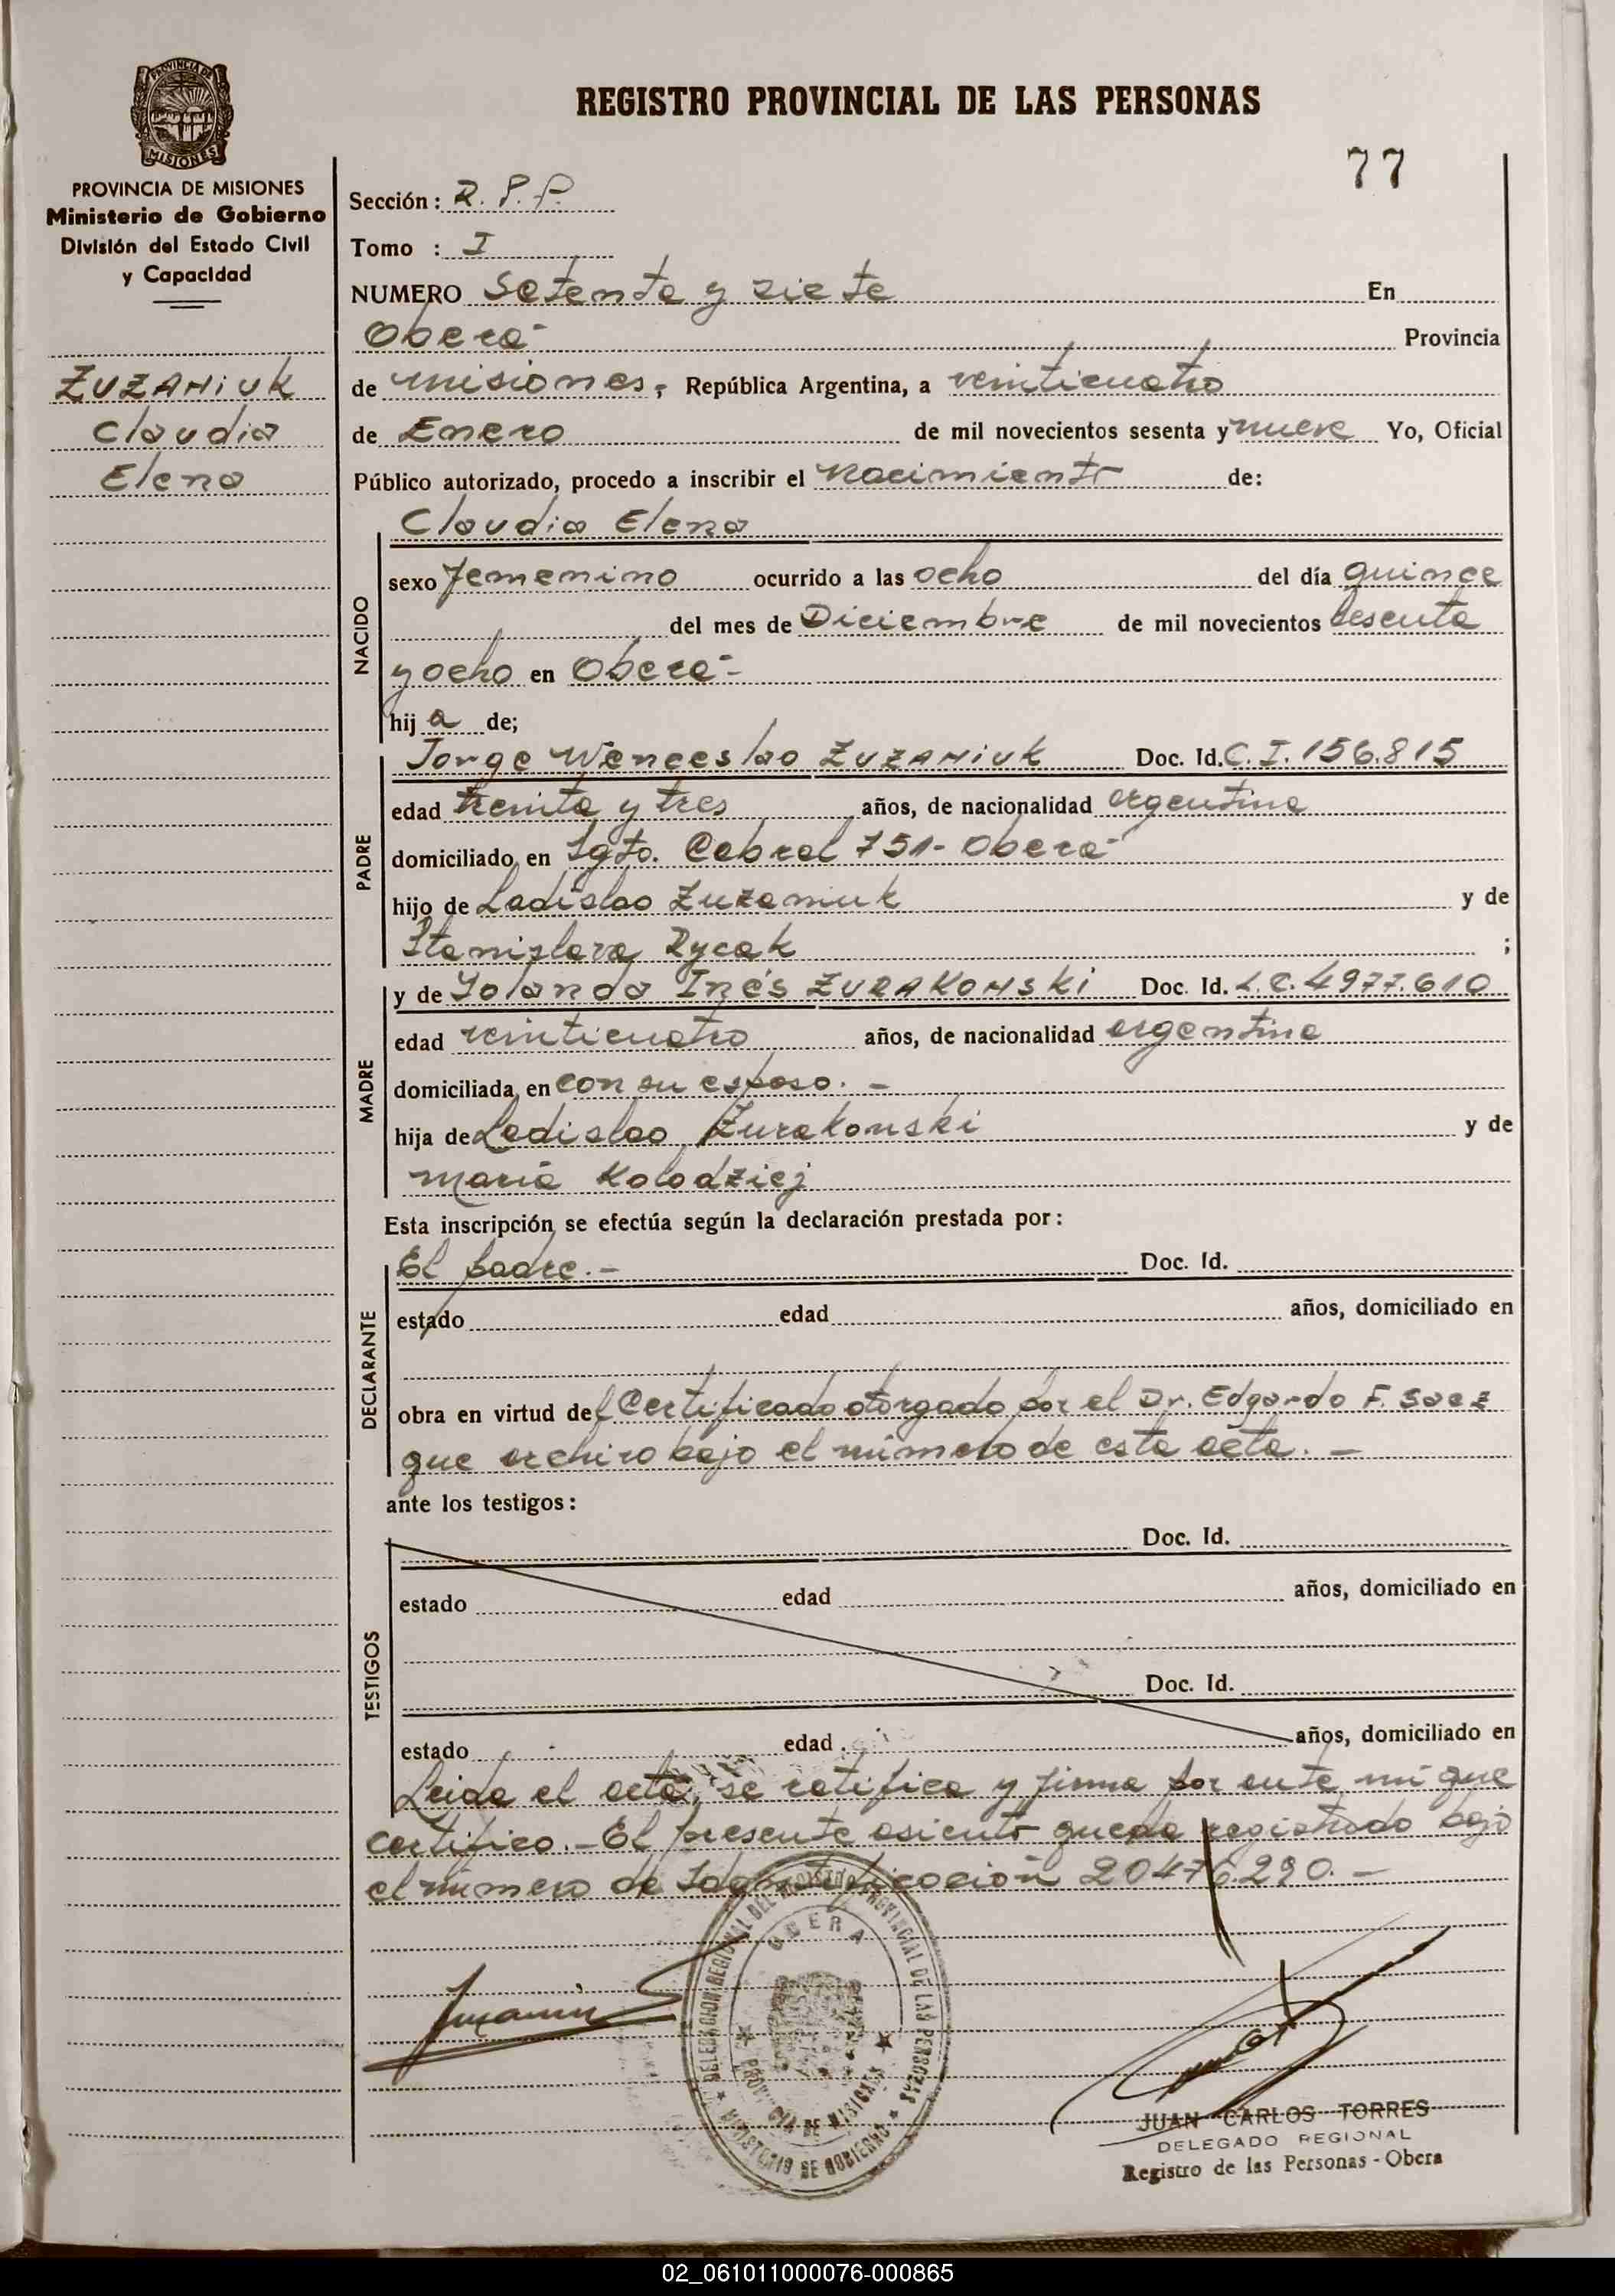 PROVINCIA DE
MISIONES
REGISTRO PROVINCIAL DE LAS PERSONAS
77
PROVINCIA DE MISIONES
Ministerio de Gobierno
División del Estado Civil
y Capacidad
ZUZANIUK
Claudia
Elena
Sección: R. P. P.
Tomo : I
NUMERO Setenta y siete En
Oberá- Provincia
de misiones, República Argentina, a veinticuatro
de Enero de mil novecientos sesenta y nueve Yo, Oficial
Público autorizado, procedo a inscribir el Nacimiento de:
Claudia Elena
NACIDO
sexo femenino ocurrido a las ocho del día quince
del mes de Diciembre de mil novecientos sesenta
y ocho en Oberá-
hij a de;
PADRE
Jorge Wenceslao ZUZANIUK Doc. Id. C. I. 156.815
edad treinta y tres años, de nacionalidad argentina
domiciliado en Sgto. Cabral 751- Oberá-
hijo de Ladislao Zuzaniuk y de
Stanislava Rycak ;
MADRE
y de Yolanda Inés ZURAKOWSKI Doc. Id. L.C. 4977.610
edad veinticuatro años, de nacionalidad argentina
domiciliada en con su esposo. -
hija de Ladislao Zurakowski y de
María Kolodziej
Esta inscripción se efectúa según la declaración prestada por:
DECLARANTE
El padre.- Doc. Id.
estado edad años, domiciliado en
obra en virtud del Certificado otorgado por el Dr. Edgardo F. Saez
que archivo bajo el número de esta acta. -
ante los testigos:
TESTIGOS
Doc. Id.
estado edad años, domiciliado en
Doc. Id.
estado edad años, domiciliado en
Leida el acta, se ratifica y firma por ante mí que
certifico.- El presente asiento queda registrado bajo
el número de Identificación 20476.290. -
DELEGACION REGIONAL DEL REGISTRO PROVINCIAL DE LAS PERSONAS
OBERA
PROVINCIA DE MISIONES
MINISTERIO DE GOBIERNO
JUAN CARLOS TORRES
DELEGADO REGIONAL
Registro de las Personas - Obera
02_061011000076-000865